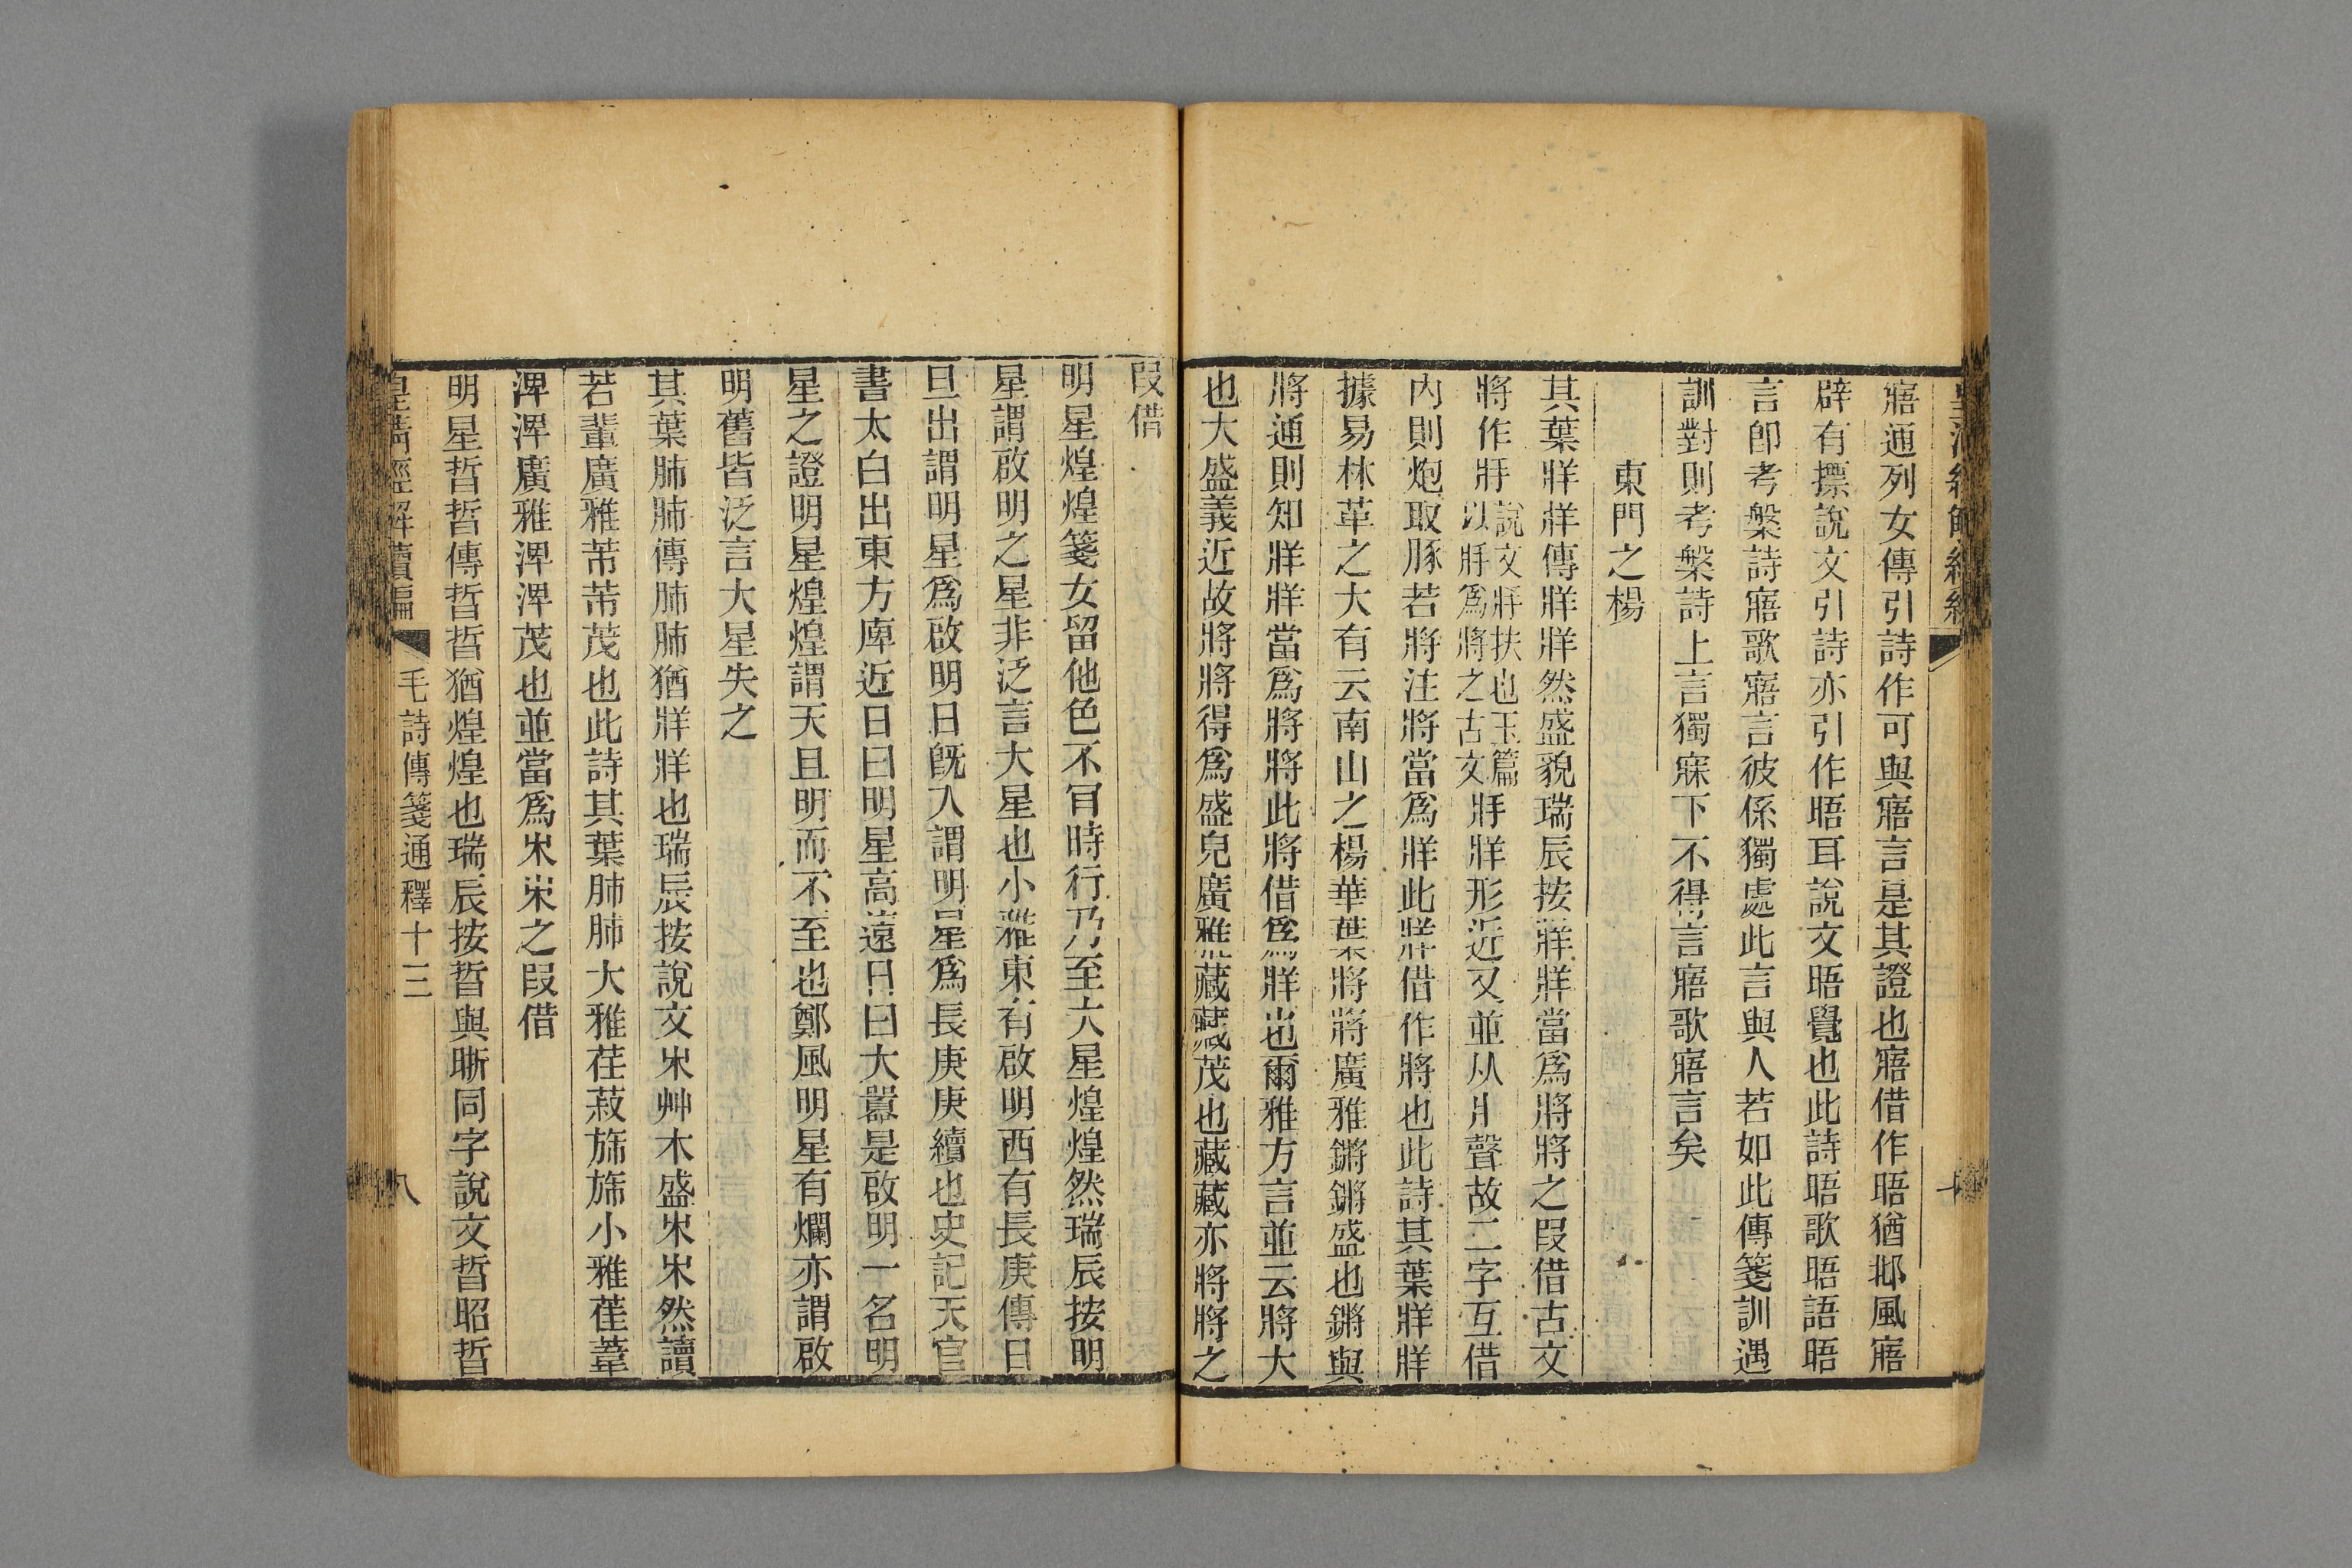 寤通列女傳引詩作可與寤言是其證也寤借作晤猶邶風寤
辟有摽說文引詩亦引作晤耳說文晤覺也此詩晤歌晤語晤
言卽考槃詩寤歌寤言彼係獨處此言與人若如此傳箋訓遇
訓對則考槃詩上言獨寐下不得言寤歌寤言矣
東門之楊
其葉牂牂傳牂牂然盛貌瑞辰按牂牂當爲將將之叚借古文
將作牂說文牂扶也玉篇以牂爲將之古文牂牂形近又並从爿聲故二字互借
內則炮取豚若將注將當爲牂此牂借作將也此詩其葉牂牂
據易林革之大有云南山之楊華葉將將廣雅鏘鏘盛也鏘與
將通則知牂牂當爲將將此將借爲牂也爾雅方言並云將大
也大盛義近故將將得爲盛皃廣雅藏藏茂也藏藏亦將將之
叚借
明星煌煌箋女留他色不肎時行乃至大星煌煌然瑞辰按明
星謂啟明之星非泛言大星也小雅東有啟明西有長庚傳日
旦出謂明星爲啟明日旣入謂明星爲長庚庚續也史記天官
書太白出東方庳近日曰明星高遠日曰大囂是啟明一名明
星之證明星煌煌謂天且明而不至也鄭風明星有爛亦謂啟
明舊皆泛言大星失之
其葉肺肺傳肺肺猶牂牂也瑞辰按說文𣎵艸木盛𣎵𣎵然讀
若輩廣雅芾芾茂也此詩其葉肺肺大雅荏菽旆旆小雅萑葦
淠淠廣雅淠淠茂也並當爲𣎵𣎵之叚借
明星晢晢傳晢晢猶煌煌也瑞辰按晢與晣同字說文晢昭晢
皇清經解續編
毛詩傳箋通釋十三
八